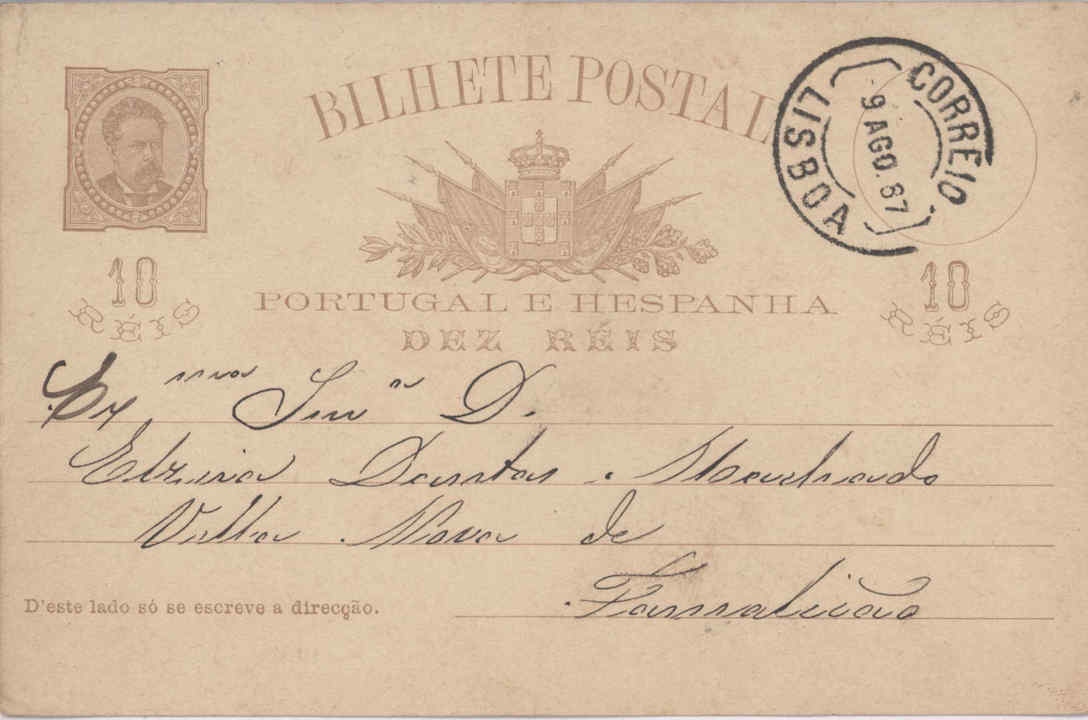 BILHETE POSTAL
CORREIO
9 AGO. 87
LISBOA
10 RÉIS
10 RÉIS
PORTUGAL E HESPANHA
DEZ RÉIS
Ex.ma Snr.a D.
Elzira Dantas Machado
Villa Nova de
Famalicão
D'este lado só se escreve a direcção.